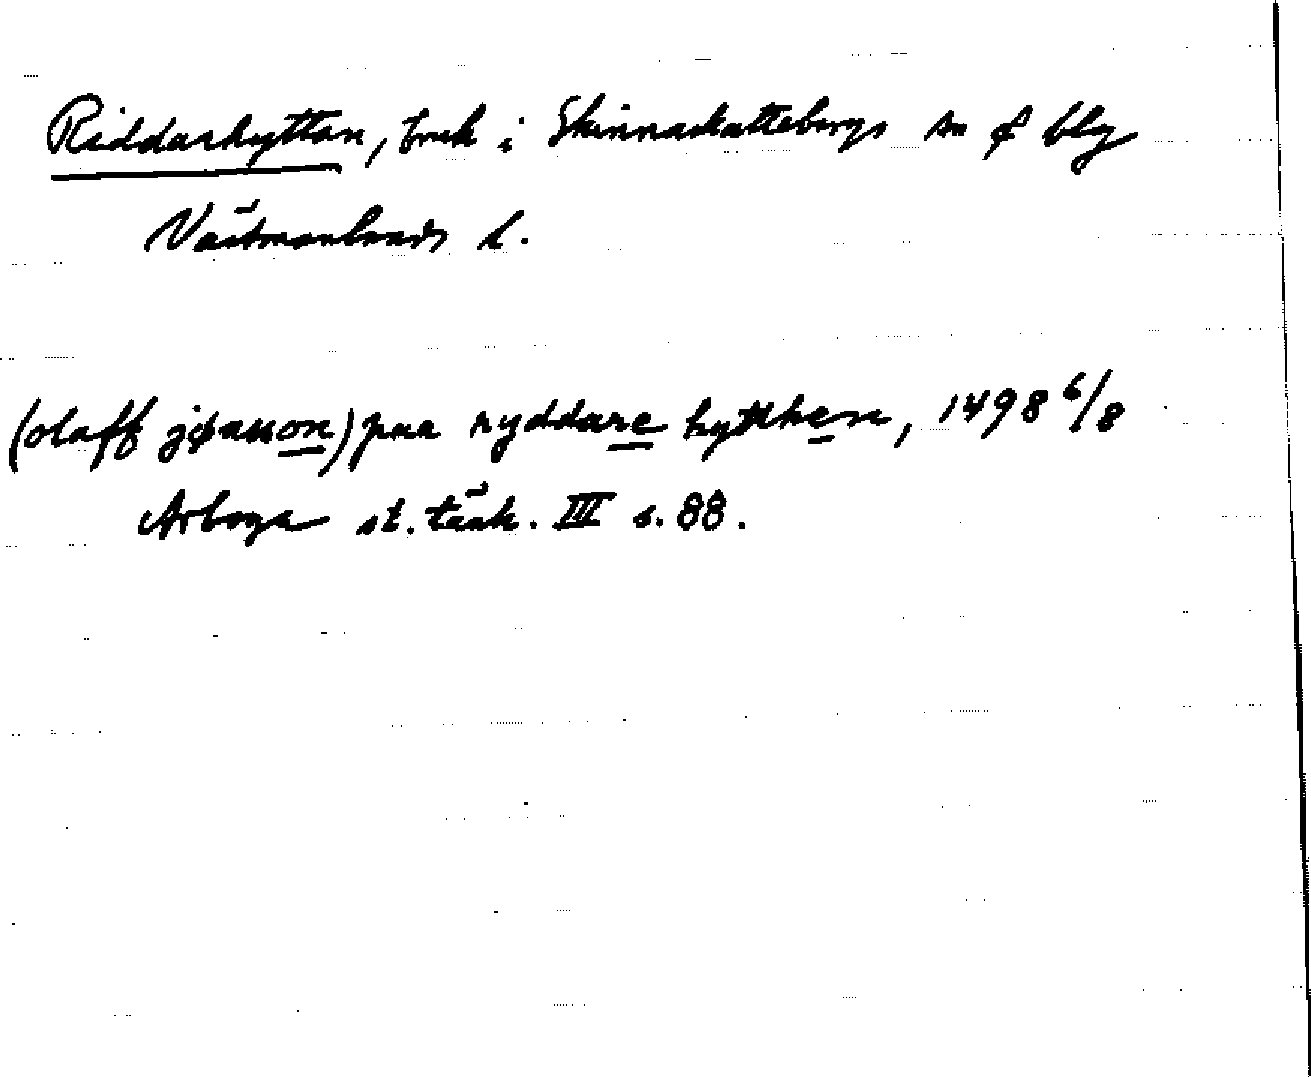 Riddarhyttan, bruk i Skinnskattebergs sn o blg
Västmanlands l.
(olaff jønsson) paa ryddare hytthen, 1498 6/8
Arboga st. tänk. III s. 88.